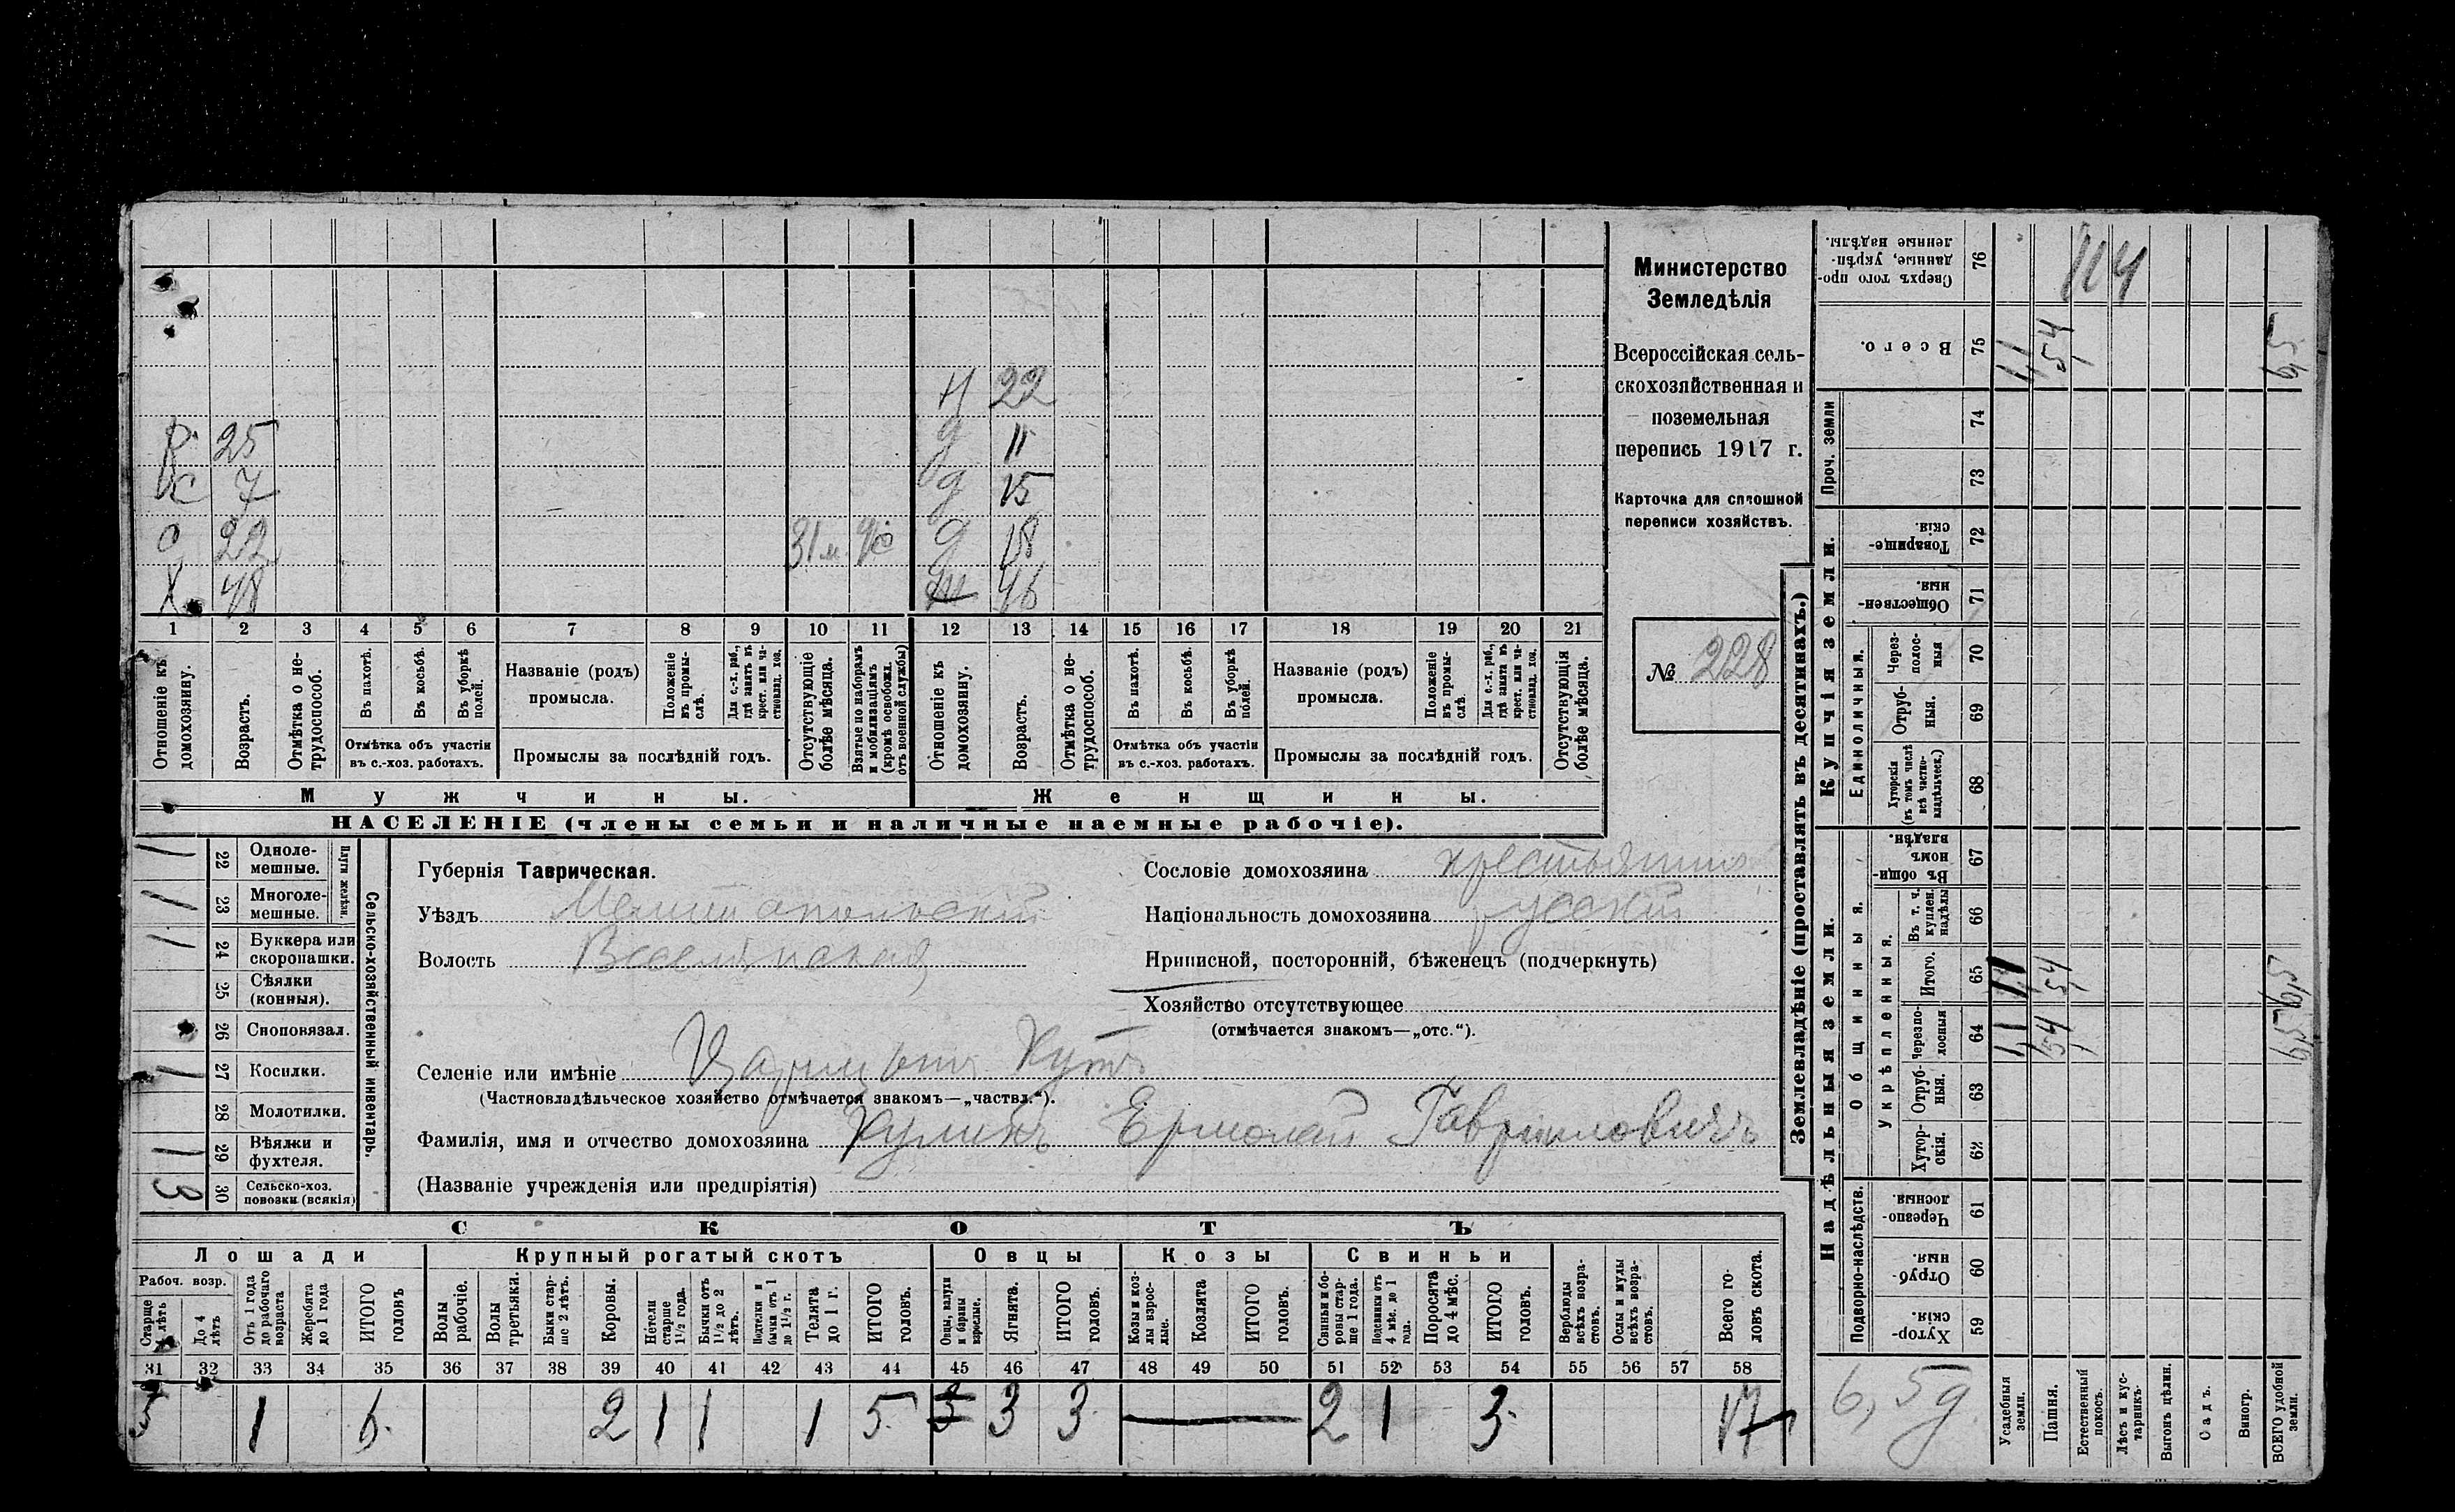 Н 22
Р 25 д 11
С 7 д 15
С 22 31 м. д 18
Х 48 46
1 2 3 4 5 6 7 8 9 10 11 12 13 14 15 16 17 18 19 20 21
Отношеніе къ домохозяину.
Возрастъ.
Отмѣтка о нетрудоспособ.
Въ пахотѣ.
Въ косьбѣ.
Въ уборкѣ полей.
Отмѣтка объ участіи
въ с.-хоз. работахъ.
Названіе (родъ)
промысла.
Положеніе въ промыслѣ.
Для с.-х. раб., гдѣ занятъ въ крест. или частновлад. хоз.
Промыслы за послѣдній годъ.
Отсутствующіе болѣе мѣсяца.
Взятые по наборамъ и мобилизаціямъ (кромѣ освобожд. отъ военной службы)
Отношеніе къ домохозяину.
Возрастъ.
Отмѣтка о нетрудоспособ.
Въ пахотѣ.
Въ косьбѣ.
Въ уборкѣ полей.
Отмѣтка объ участіи
въ с.-хоз. работахъ.
Названіе (родъ)
промысла.
Положеніе въ промыслѣ.
Для с.-х. раб., гдѣ занята въ крест. или частновлад. хоз.
Промыслы за послѣдній годъ.
Отсутствующія болѣе мѣсяца.
Мужчины.
Женщины.
НАСЕЛЕНІЕ (члены семьи и наличные наемные рабочіе).
Министерство
Земледѣлія
Всероссійская сель-
скохозяйственная и
поземельная
перепись 1917 г.
Карточка для сплошной
переписи хозяйствъ.
№ 228
Сельско-хозяйственный инвентарь.
Плуги желѣзн.
1 22 Однолемешные.
1 23 Многолемешные.
1 24 Буккера или скоропашки.
25 Сѣялки (конныя).
26 Сноповязал.
1 27 Косилки.
28 Молотилки.
1 29 Вѣялки и фухтеля.
3 30 Сельско-хоз. повозки (всякія)
Губернія Таврическая.
Уѣздъ Мелитопольскій
Волость Веселянская
Сословіе домохозяина крестьянинъ
Національность домохозяина русскій
Приписной, посторонній, бѣженецъ (подчеркнуть)
Хозяйство отсутствующее
(отмѣчается знакомъ—„отс.“).
Селеніе или имѣніе Царицынъ Кутъ
(Частновладѣльческое хозяйство отмѣчается знакомъ—„частвл.“).
Фамилія, имя и отчество домохозяина Куликъ Ермолай Гавриловичъ
(Названіе учрежденія или предпріятія)
СКОТЪ
Лошади Крупный рогатый скотъ Овцы Козы Свиньи
Рабоч. возр.
Старше 4 лѣтъ
До 4 лѣтъ
Отъ 1 года до рабочаго возраста
Жеребята до 1 года
ИТОГО головъ
Волы рабочіе.
Волы третьяки.
Быки старше 2 лѣтъ.
Коровы.
Нетели старше 1½ года.
Бычки отъ 1½ до 2 лѣтъ.
Подтелки и бычки отъ 1 до 1½ г.
Телята до 1 г.
ИТОГО головъ.
Овцы, валухи и бараны взрослые.
Ягнята.
ИТОГО головъ.
Козы и козлы взрослые.
Козлята
ИТОГО головъ.
Свиньи и боровы старше 1 года.
Подсвинки отъ 4 мѣс. до 1 года.
Поросята до 4 мѣс.
ИТОГО головъ.
Верблюды всѣхъ возрастовъ.
Ослы и мулы всѣхъ возрастовъ.
Всего головъ скота.
31 32 33 34 35 36 37 38 39 40 41 42 43 44 45 46 47 48 49 50 51 52 53 54 55 56 57 58
5 1 6. 2 1 1 1 5. 3 3 3. 2 1 3. 17
Землевладѣніе (проставлять въ десятинахъ.)
Сверхъ того проданные, укрѣпленные надѣлы. 76
Всего. 75
Проч. земли 74 73
Купчія земли.
Товарищескія. 72
Общественныя. 71
Единоличныя.
Черезполосныя 70
Отрубныя. 69
Хуторскія (въ томъ числѣ всѣ частновладѣльческ.) 68
Надѣльныя земли.
Общинныя.
Въ общинномъ владѣн. 67
Укрѣпленныя.
Въ т. ч. куплен. надѣлы 66
Итого. 65
Черезполосныя 64
Отрубныя. 63
Хуторскія. 62
Подворно-наслѣдств.
Черезполосныя. 61
Отрубныя. 60
Хуторскія. 59
6,5 д
Усадебныя земли.
Пашня.
Естественный покосъ.
Лѣсъ и кустарникъ.
Выгонъ цѣлин.
Садъ.
Виногр.
ВСЕГО удобной земли.